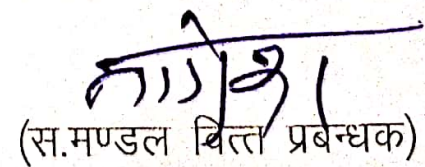 (स.मण्डल वित्त प्रबन्धक)